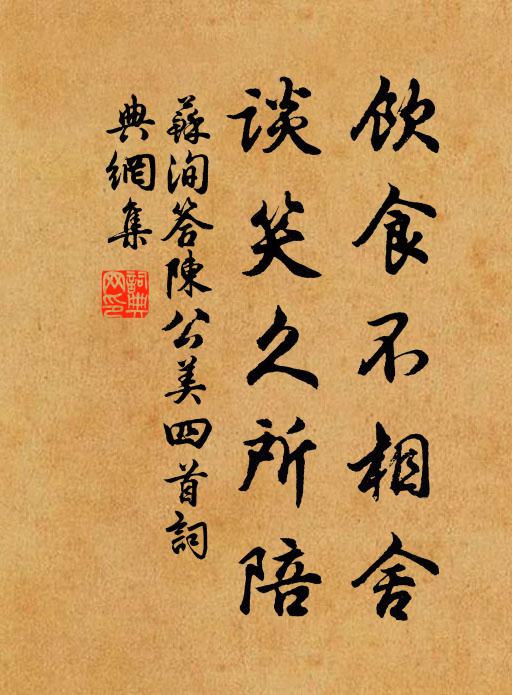 飲食不相舍
談笑久所陪
蘇洵答陳公美四首詞
典網集
詞典
网印